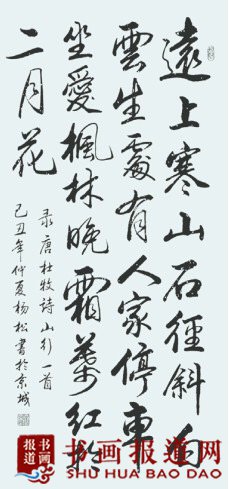 遠上寒山石徑斜白
雲生處有人家停車
坐愛楓林晚霜葉紅於
二月花
录唐杜牧诗山行一首
己丑年仲夏杨松書於京城
书画
报道
书画报道网
SHU HUA BAO DAO